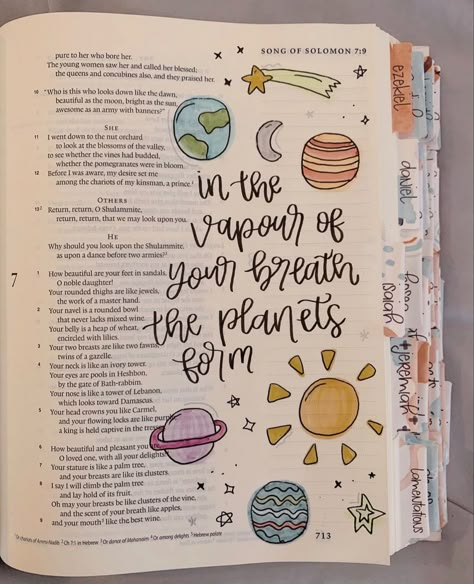 SONG OF SOLOMON 7:9
pure to her who bore her.
The young women saw her and called her blessed;
the queens and concubines also, and they praised her.
10 "Who is this who looks down like the dawn,
beautiful as the moon, bright as the sun,
awesome as an army with banners?"
SHE
11 I went down to the nut orchard
to look at the blossoms of the valley,
to see whether the vines had budded,
whether the pomegranates were in bloom.
12 Before I was aware, my desire set me
among the chariots of my kinsman, a prince.
OTHERS
13 Return, return, O Shulammite,
return, return, that we may look upon you.
HE
Why should you look upon the Shulammite,
as upon a dance before two armies?
7
1 How beautiful are your feet in sandals,
O noble daughter!
Your rounded thighs are like jewels,
the work of a master hand.
2 Your navel is a rounded bowl
that never lacks mixed wine.
Your belly is a heap of wheat,
encircled with lilies.
3 Your two breasts are like two fawns,
twins of a gazelle.
4 Your neck is like an ivory tower.
Your eyes are pools in Heshbon,
by the gate of Bath-rabbim.
Your nose is like a tower of Lebanon,
which looks toward Damascus.
5 Your head crowns you like Carmel,
and your flowing locks are like purple;
a king is held captive in the tresses
6 How beautiful and pleasant you
O loved one, with all your delights!
7 Your stature is like a palm tree,
and your breasts are like its clusters.
8 I say I will climb the palm tree
and lay hold of its fruit.
Oh may your breasts be like clusters of the vine,
and the scent of your breath like apples,
9 and your mouth like the best wine.
Or chariots of Ammi-Nadib Ch 7:1 in Hebrew Or dance of Mahanaim Or among delights Hebrew palate
713
in the
vapour of
your breath
the planets
form
ezekiel
daniel
hosea
isaiah
jeremiah
lamentations